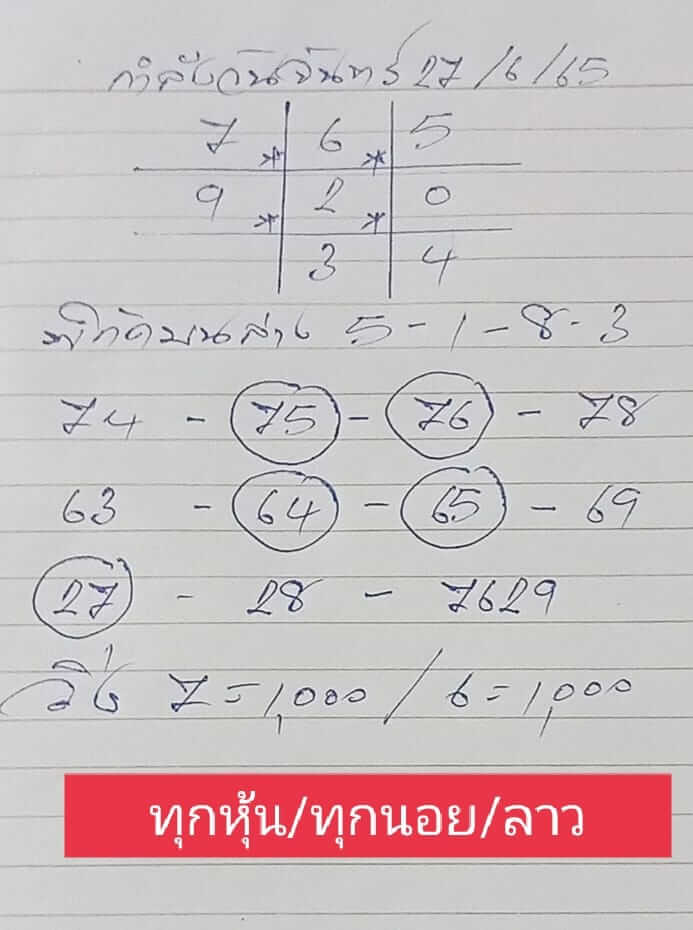 กำลังวันจันทร์ 27/6/65
7 6 5
* *
9 2 0
* *
3 4
พิกัดบนล่าง 5-1-8-3
74 - 75 - 76 - 78
63 - 64 - 65 - 69
27 - 28 - 7629
วิ่ง 7=1,000 / 6=1,000
ทุกหุ้น/ทุกนอย/ลาว